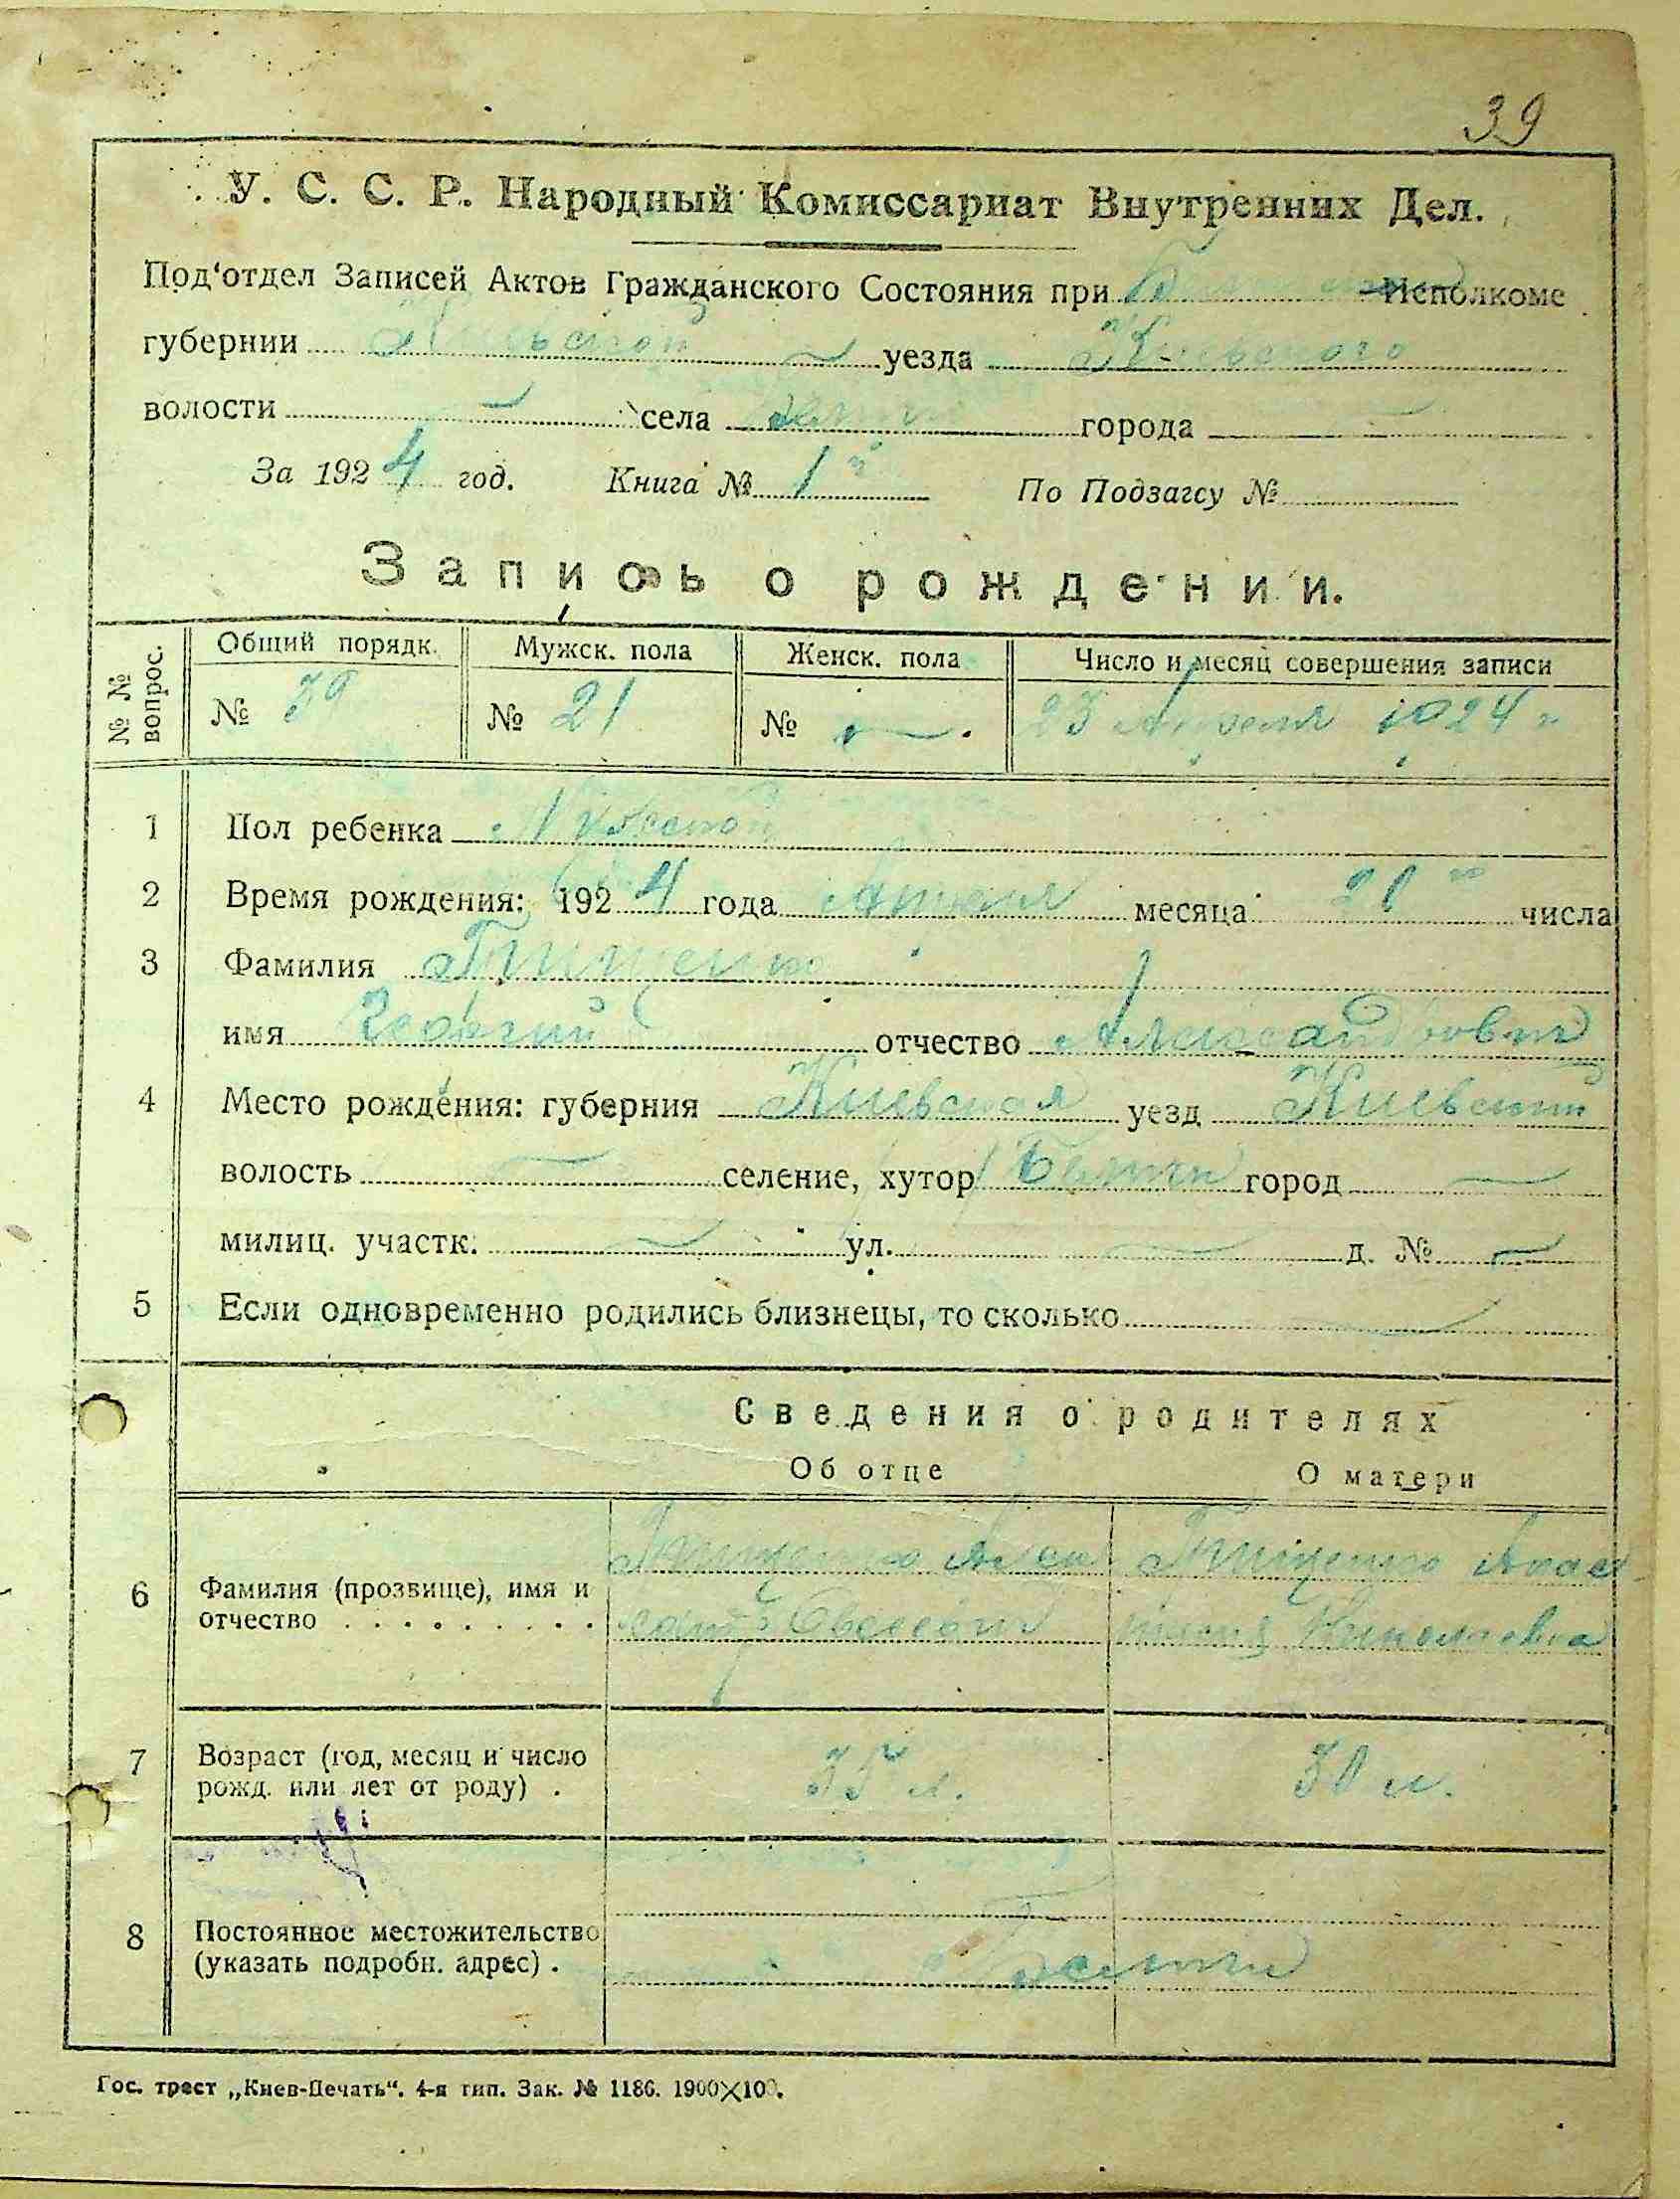 39
У. С. С. Р. Народный Комиссариат Внутренних Дел.
Под'отдел Записей Актов Гражданского Состояния при Исполкоме
губернии Киевской уезда Киевского
волости — села города —
За 1924 год. Книга № 1 По Подзагсу №
Запись о рождении.
№ № вопрос. Общий порядк. Мужск. пола Женск. пола Число и месяц совершения записи
№ 39 № 21 № — 23 Апреля 1924 г
1 Пол ребенка Мужской
2 Время рождения: 1924 года Апреля месяца 21 го числа
3 Фамилия Тищенко
имя Георгий отчество Александрович
4 Место рождения: губерния Киевская уезд Киевский
волость — селение, хутор город —
милиц. участк. — ул. — д. № —
5 Если одновременно родились близнецы, то сколько —
Сведения о родителях
Об отце О матери
6 Фамилия (прозвище), имя и отчество
Тищенко Алек Тищенко Анас
сандр Евсеевич тасия Николаевна
7 Возраст (год, месяц и число рожд. или лет от роду) . 35 л. 30 л.
8 Постоянное местожительство (указать подробн. адрес) .
Гос. трест „Киев-Печать“. 4-я тип. Зак. № 1186. 1900×100.